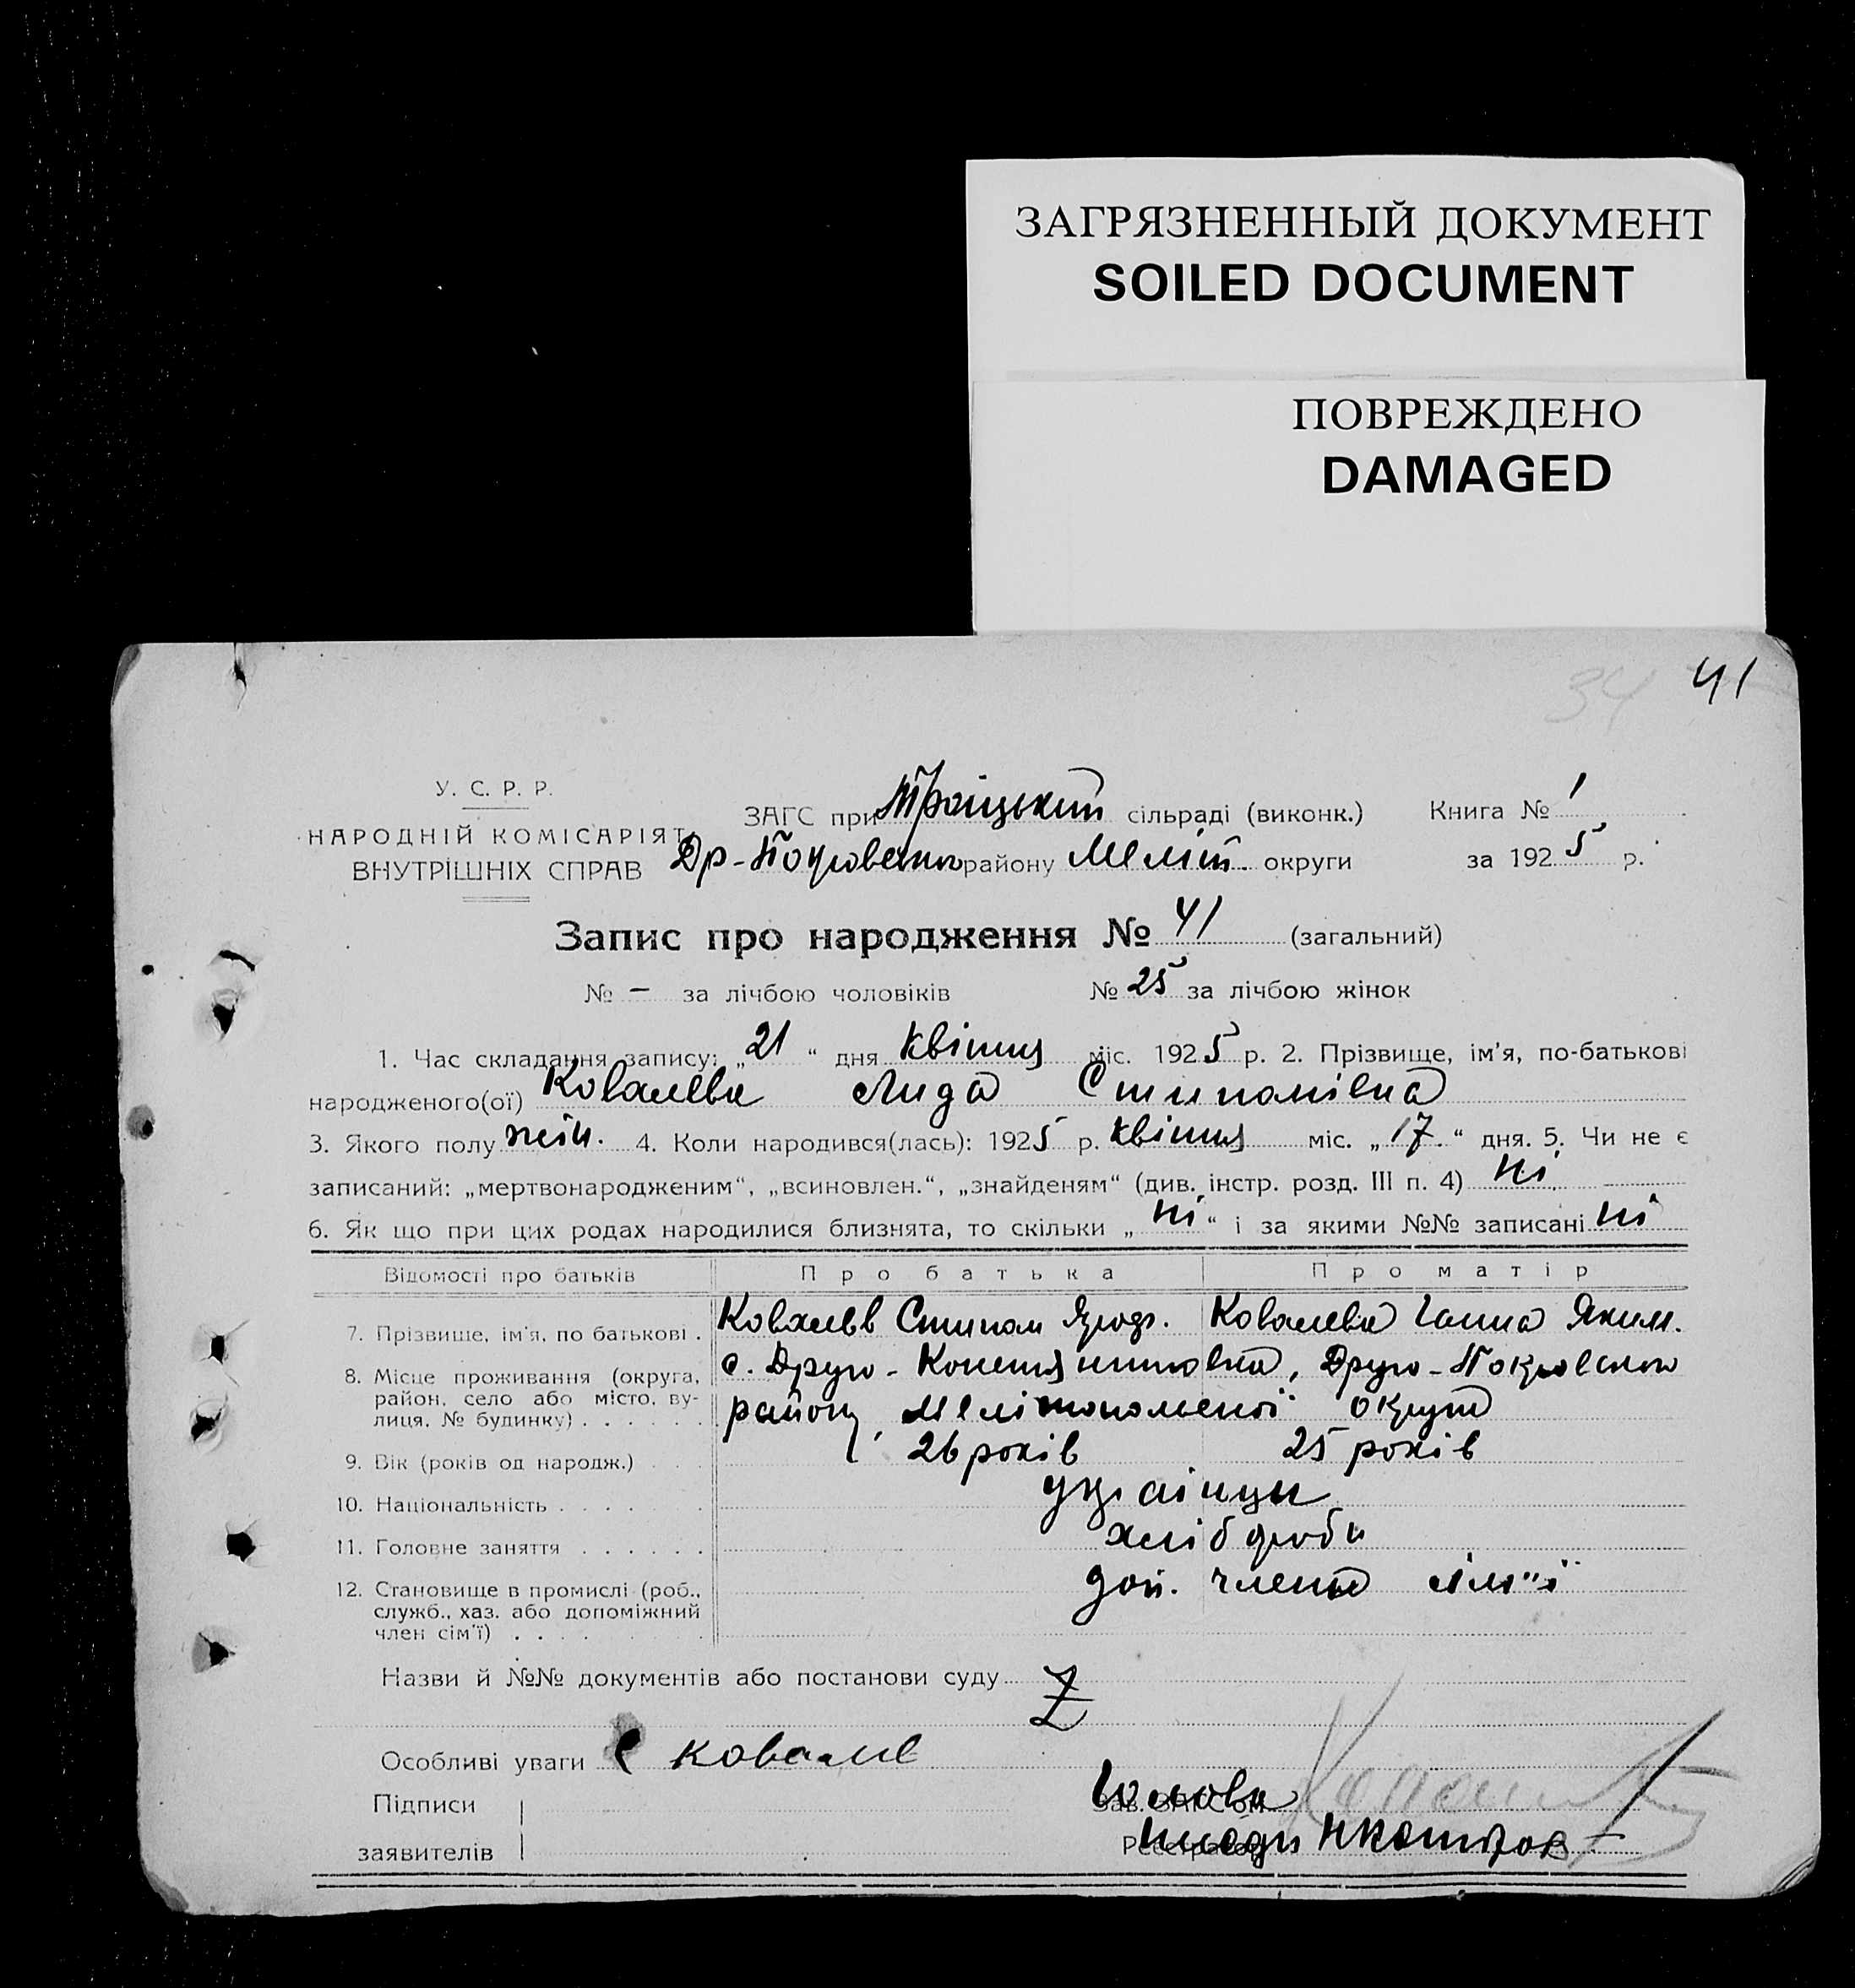 ЗАГРЯЗНЕННЫЙ ДОКУМЕНТ
SOILED DOCUMENT
ПОВРЕЖДЕНО
DAMAGED
34 41
У. С. Р. Р.
НАРОДНІЙ КОМІСАРІЯТ
ВНУТРІШНІХ СПРАВ
ЗАГС при Троіцький сільраді (виконк.) Книга № 1
Др-Покровськ району Меліт. округи за 1925 р.
Запис про народження № 41 (загальний)
№ – за лічбою чоловіків № 25 за лічбою жінок
1. Час складання запису: „21“ дня квітня міс. 1925 р. 2. Прізвище, ім'я, по-батькові
народженого(ої) Ковалева Лида Степанівна
3. Якого полу жін. 4. Коли народився(лась): 1925 р. квітня міс. „17.“ дня. 5. Чи не є
записаний: „мертвонародженим“, „всиновлен.“, „знайденям“ (див. інстр. розд. III п. 4) ні
6. Як що при цих родах народилися близнята, то скільки „ні“ і за якими №№ записані ні
Відомості про батьків Про батька Про матір
7. Прізвище, ім'я, по батькові . Ковальв Степан Ковалева Ганна Яким.
8. Місце проживання (округа, район, село або місто, вулиця, № будинку) . . . . . . с. Друго-Констянтиновка, Друго-Покровського
району, Мелітопольської округи
9. Вік (років од народж.) . . . 26 років 25 років
10. Національність . . . . . українцы
11. Головне заняття . . . . . . хлібороби
12. Становище в промислі (роб., служб., хаз. або допоміжний член сім'ї) . . . . доп. члени сім"ї
Назви й №№ документів або постанови суду Z
Особливі уваги Ковале
Підписи
заявителів
Зав. ЗАГС'ом Голова
Реєстратор